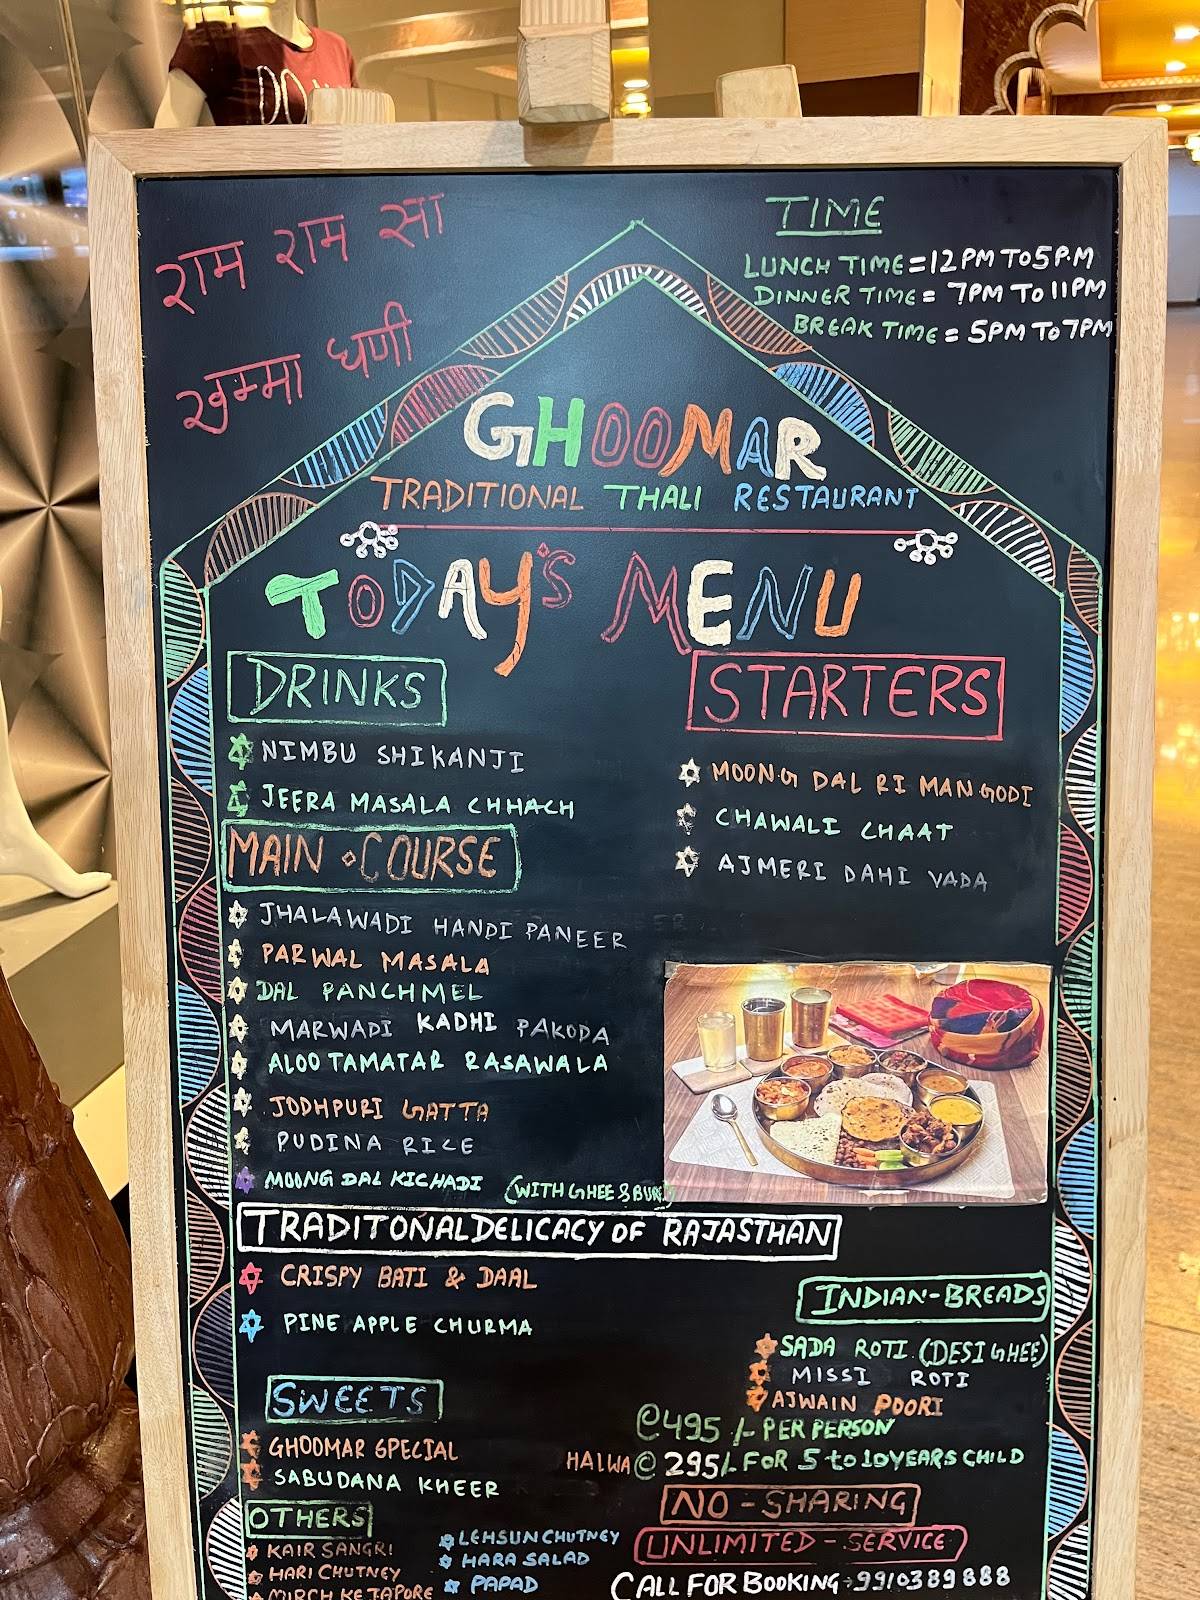 राम राम सा
खम्मा घणी
TIME
LUNCH TIME = 12 PM TO 5 P.M
DINNER TIME = 7PM TO 11PM
BREAK TIME = 5PM TO 7PM
GHOOMAR
TRADITIONAL THALI RESTAURANT
TODAY'S MENU
DRINKS
NIMBU SHIKANJI
JEERA MASALA CHHACH
STARTERS
MOONG DAL RI MANGODI
CHAWALI CHAAT
AJMERI DAHI VADA
MAIN COURSE
JHALAWADI HANDI PANEER
PARWAL MASALA
DAL PANCHMEL
MARWADI KADHI PAKODA
ALOO TAMATAR RASAWALA
JODHPURI GATTA
PUDINA RICE
MOONG DAL KICHADI (WITH GHEE &
TRADITONAL DELICACY OF RAJASTHAN
CRISPY BATI & DAAL
PINE APPLE CHURMA
INDIAN-BREADS
SADA ROTI. (DESI GHEE)
MISSI ROTI
AJWAIN POORI
SWEETS
GHOOMAR SPECIAL HALWA
SABUDANA KHEER
@495/- PER PERSON
@ 295/- FOR 5 to 10 YEARS CHILD
NO-SHARING
UNLIMITED-SERVICE
CALL FOR BOOKING → 9910389888
OTHERS
KAIR SANGRI
HARI CHUTNEY
MIRCH KE TAPORE
LEHSUN CHUTNEY
HARA SALAD
PAPAD